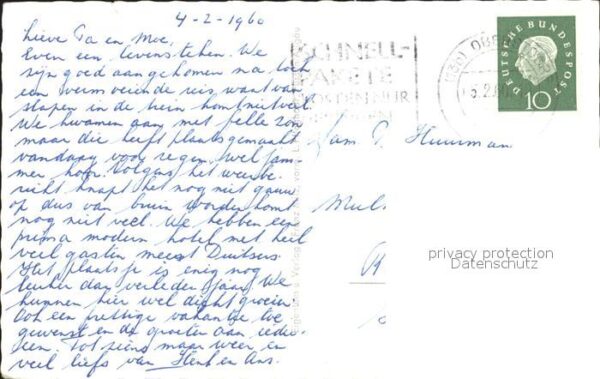 4-2-1960
Lieve Pa en Moe,
Even een levensteken. We
zijn goed aangekomen na toch
een vermoeiende reis want van
slapen in de trein komt niet veel.
We kwamen aan met felle zon
maar die heeft plaats gemaakt
vandaag voor regen, wel jam-
mer hoor. Volgens het weerbe-
richt knapt het nog niet gauw
op dus van bruin worden komt
nog niet veel. We hebben een
prima modern hotel met heel
veel gasten meest Duitsers
Het plaatsje is enig nog
leuker dan verleden jaar. We
kunnen hier wel dicht groeien.
Ook een prettige vakantie toe
gewenst en de groeten aan ieder-
een. Tot ziens maar weer en
veel liefs van Henk en Ans.
SCHNELL-
PAKETE
KOSTEN NUR
DEUTSCHE BUNDESPOST
10
Fam. Huurman
privacy protection
Datenschutz